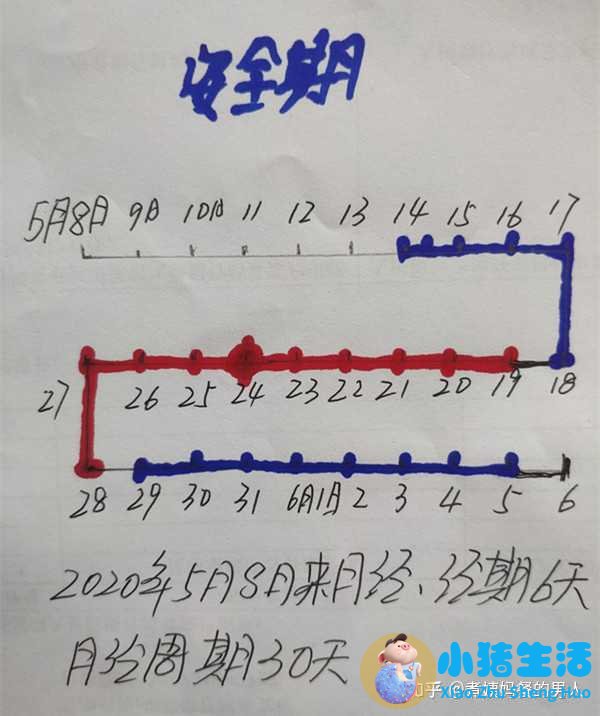 安全期
5月8日 9日 10日 11 12 13 14 15 16 17
27 26 25 24 23 22 21 20 19 18
28 29 30 31 6月1日 2 3 4 5 6
2020年5月8日来月经、经期6天
月经周期30天
小猪生活
知乎 @煮姨妈餐的男人
Xiao Zhu Sheng Huo